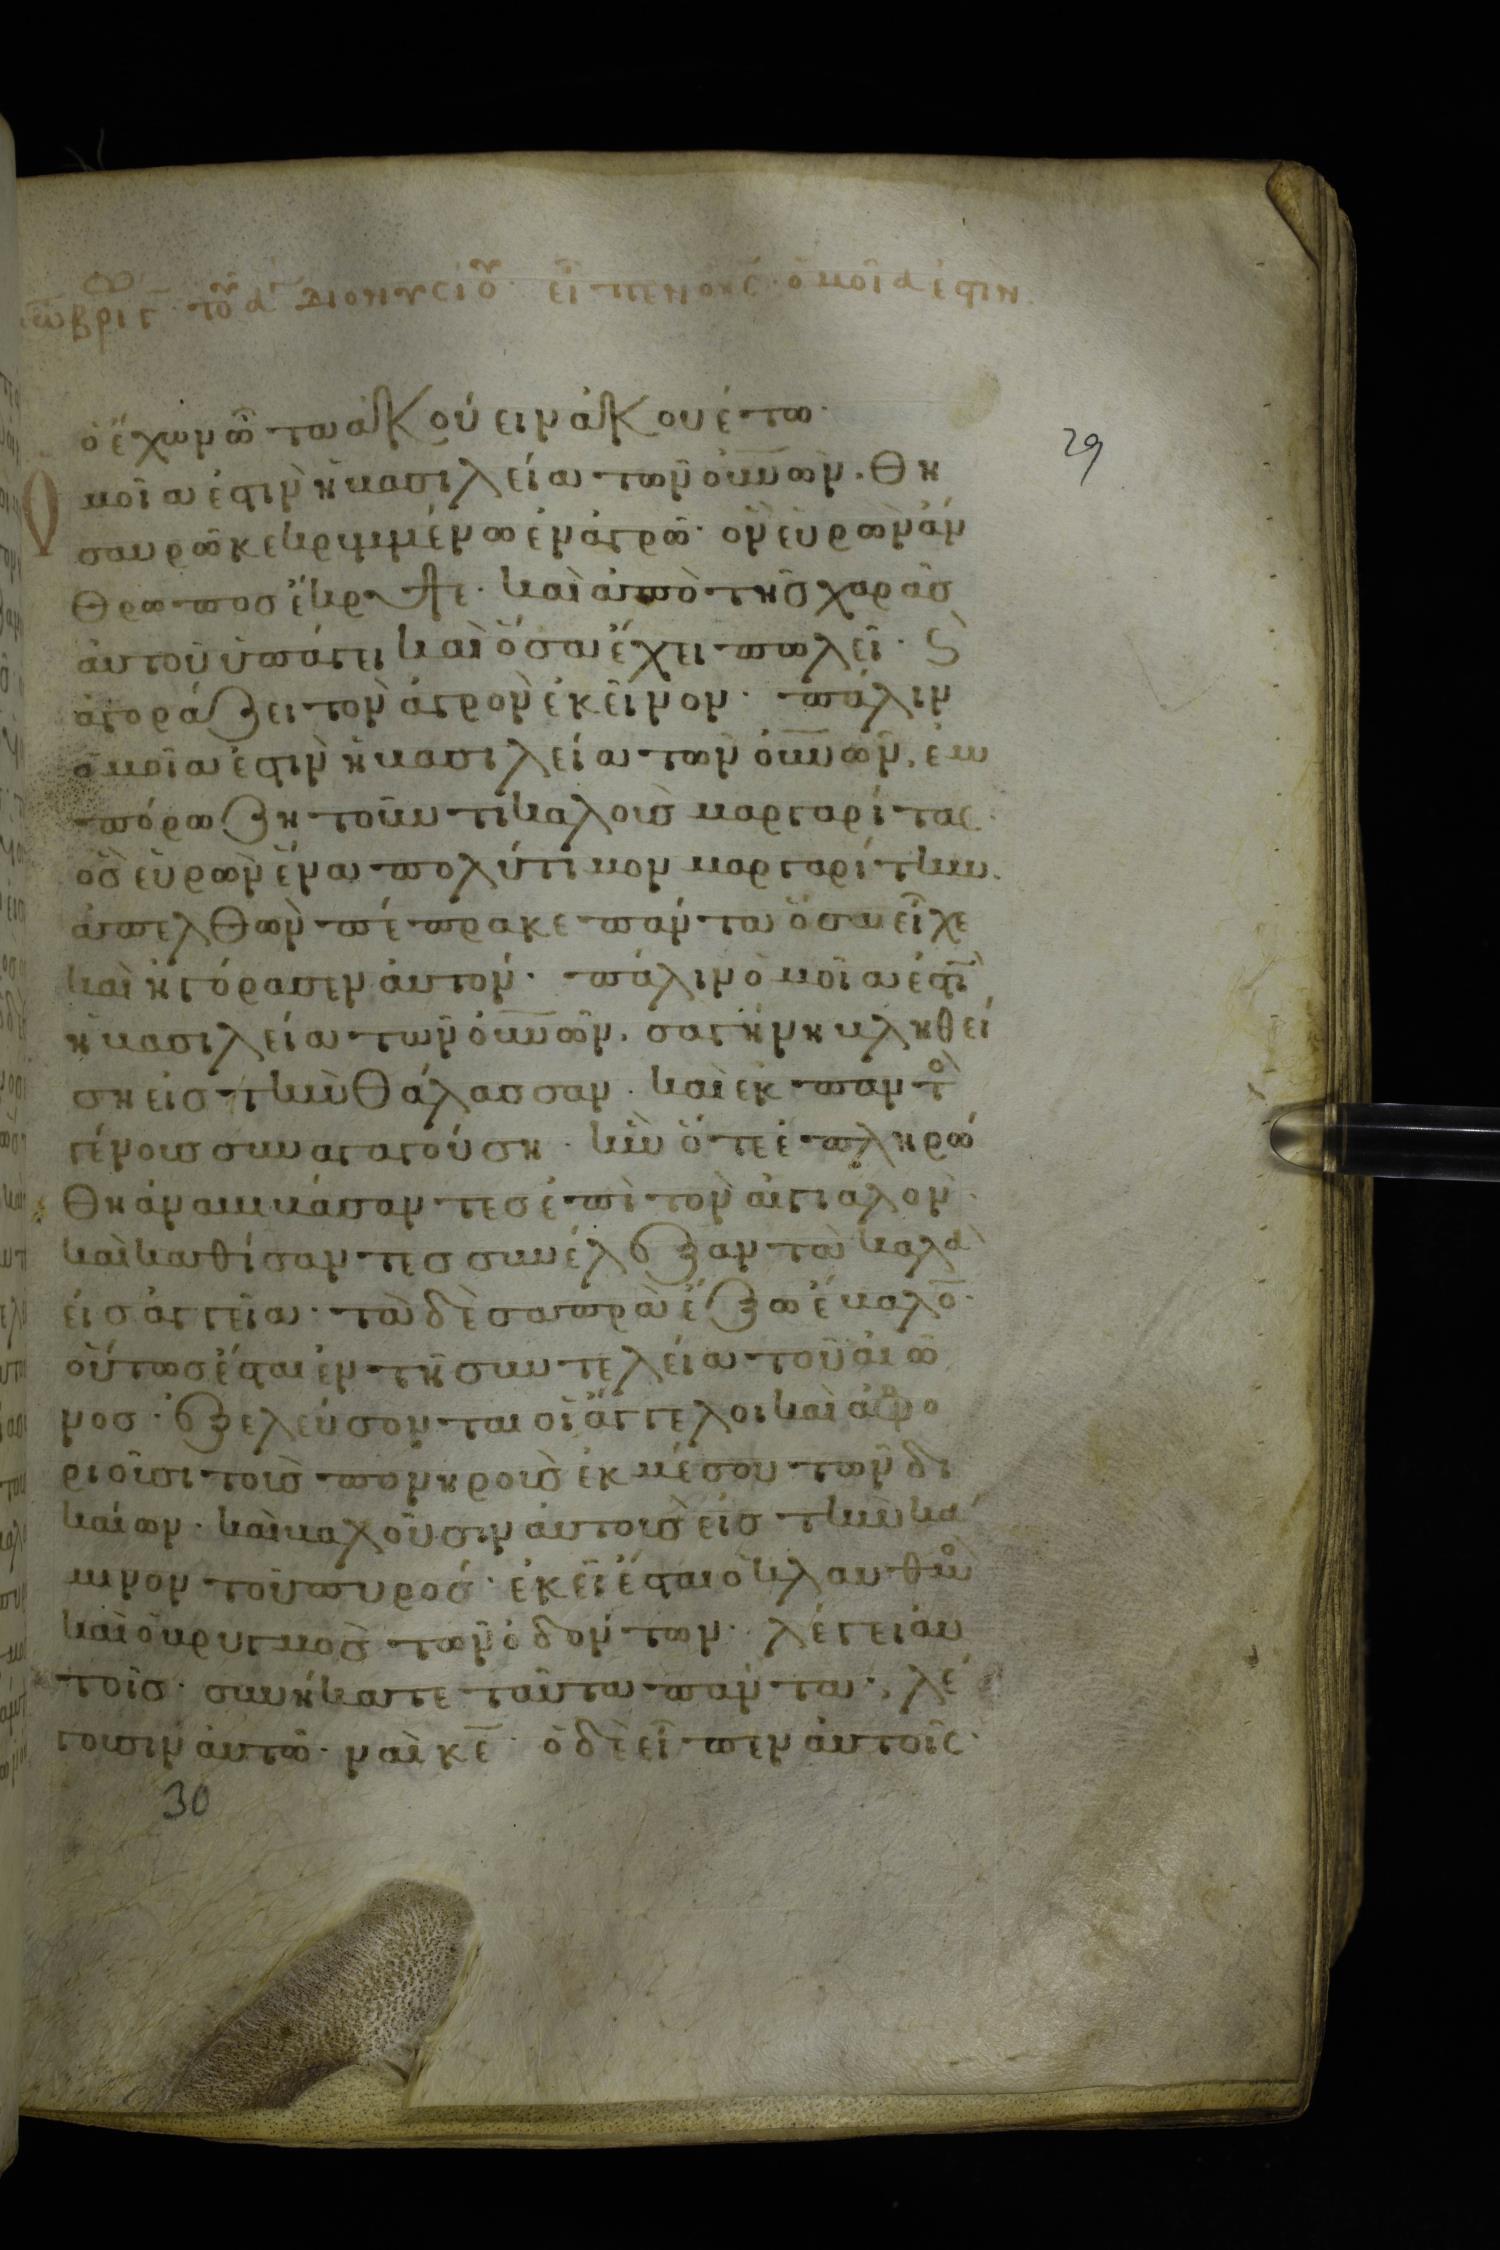 τοῦ ἁ διονυσίου εἶπεν ὁ κς ὁμοία ἐστὶν
ὁ ἔχων ὦτα ἀκούειν ἀκουέτω·
29
Ὁμοία ἐστὶν ἡ βασιλεία τῶν οὐνῶν· θη
σαυρῶ κεκρυμμένω ἐν ἀγρῶ· ὃν εὑρὼν ἄν
θρωπος ἔκρυψε· καὶ ἀπὸ τῆς χαρᾶς
αὐτοῦ ὑπάγει καὶ ὅσα ἔχει πωλεῖ· ϗ
ἀγοράζει τὸν ἀγρὸν ἐκεῖνον· πάλιν
ὁμοία ἐστὶν ἡ βασιλεία τῶν οὐνῶν, ἐμ
πόρω ζητοῦντι καλοὺς μαργαρίτας·
ὃς εὑρὼν ἕνα πολύτιμον μαργαρίτην.
ἀπελθὼν πέπρακε πάντα ὅσα εἶχε
καὶ ἠγόρασεν αὐτόν· πάλιν ὁμοία ἐστὶ
ἡ βασιλεία τῶν οὐνῶν, σαγήνη βληθεί
ση εἰς τὴν θάλασσαν· καὶ ἐκ παντὸ
γένους συναγαγούση· ἣν ὅτε ἐπληρώ
θη ἀναβιβάσαντες ἐπὶ τὸν αἰγιαλὸν·
καὶ καθίσαντες συνέλεξαν τὰ καλὰ
εἰς ἀγγεῖα· τὰ δὲ σαπρὰ ἔξω ἔβαλο̅·
οὕτως ἔσται ἐν τῆ συντελεία τοῦ αἰῶ
νος· ἐξελεύσονται οἱ ἄγγελοι καὶ ἀφο
ριοῦσι τοὺς πονηροὺς ἐκ μέσου τῶν δι
καίων· καὶ βαλοῦσιν αὐτοὺς εἰς τὴν κά
μινον τοῦ πυρός· ἐκεῖ ἔσται ὁ κλαυθμὸ
καὶ ὁ βρυγμὸς τῶν ὀδόντων· λέγει αὐ
τοῖς· συνήκατε ταῦτα πάντα·, λέ
γουσιν αὐτῶ· ναὶ κε· ὁ δὲ εἶπεν αὐτοῖς·
30